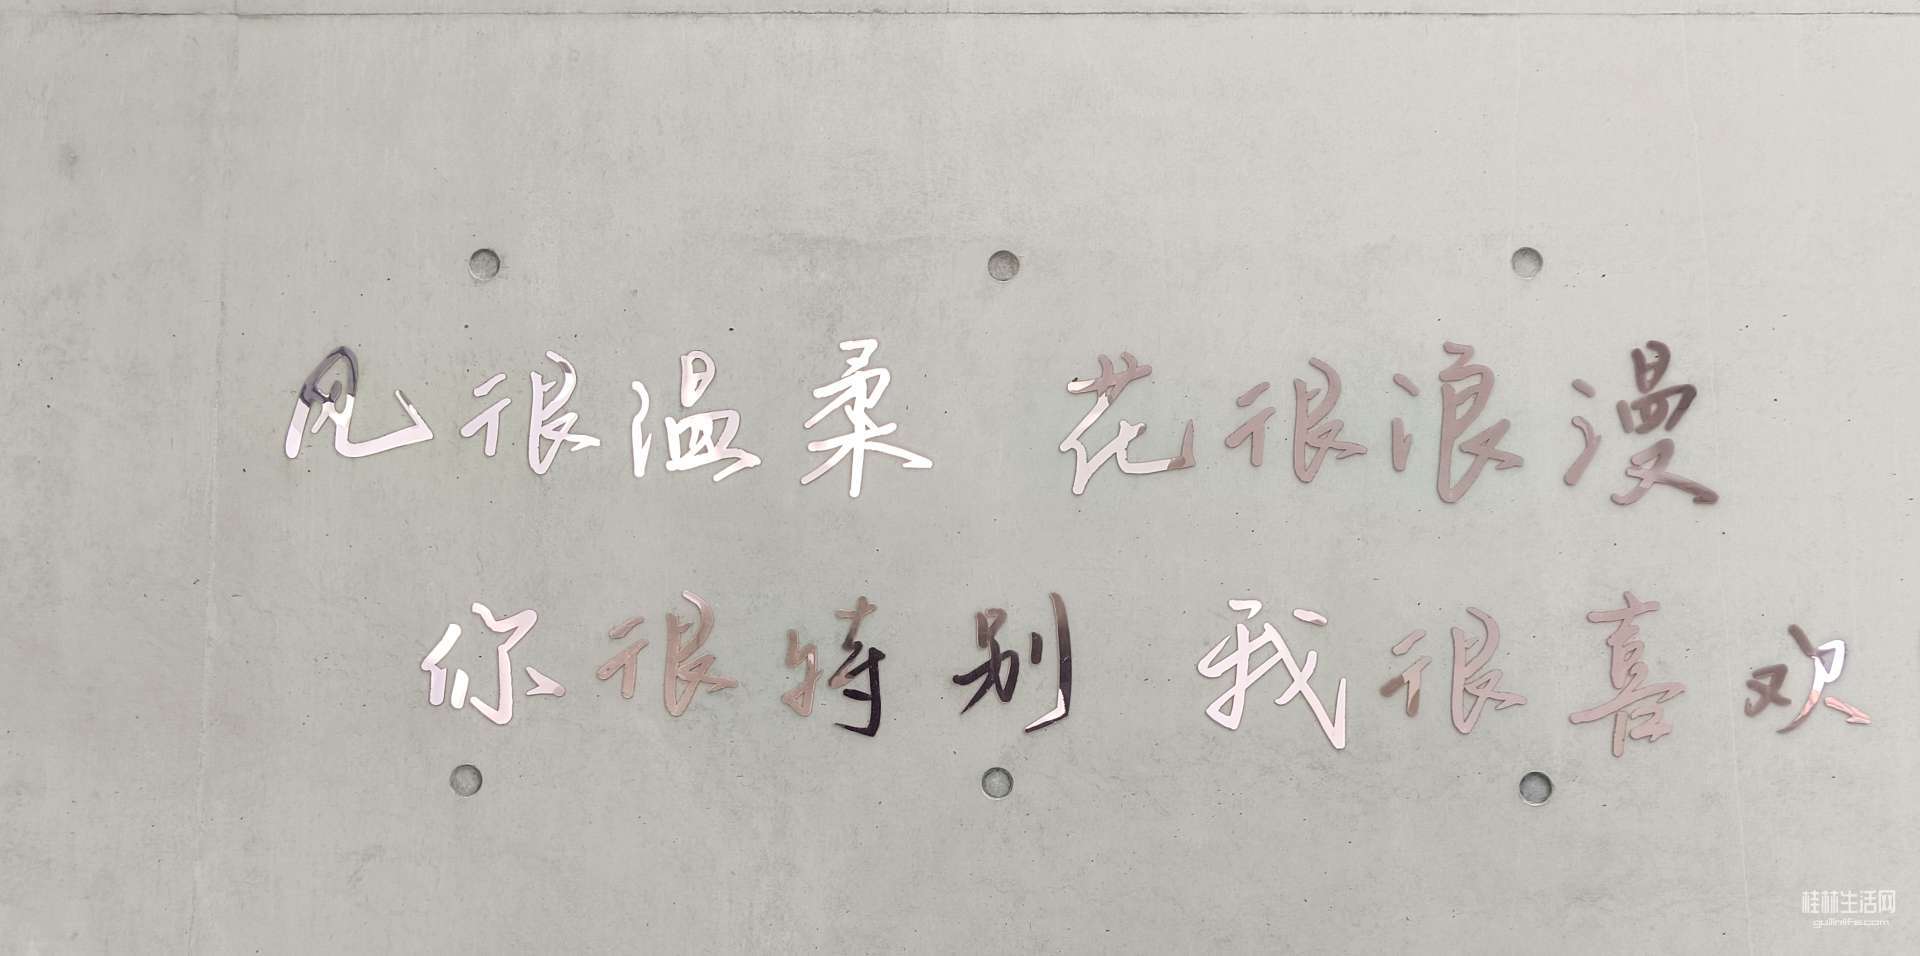 风很温柔 花很浪漫
你很特别 我很喜欢
桂林生活网
guilinlife.com